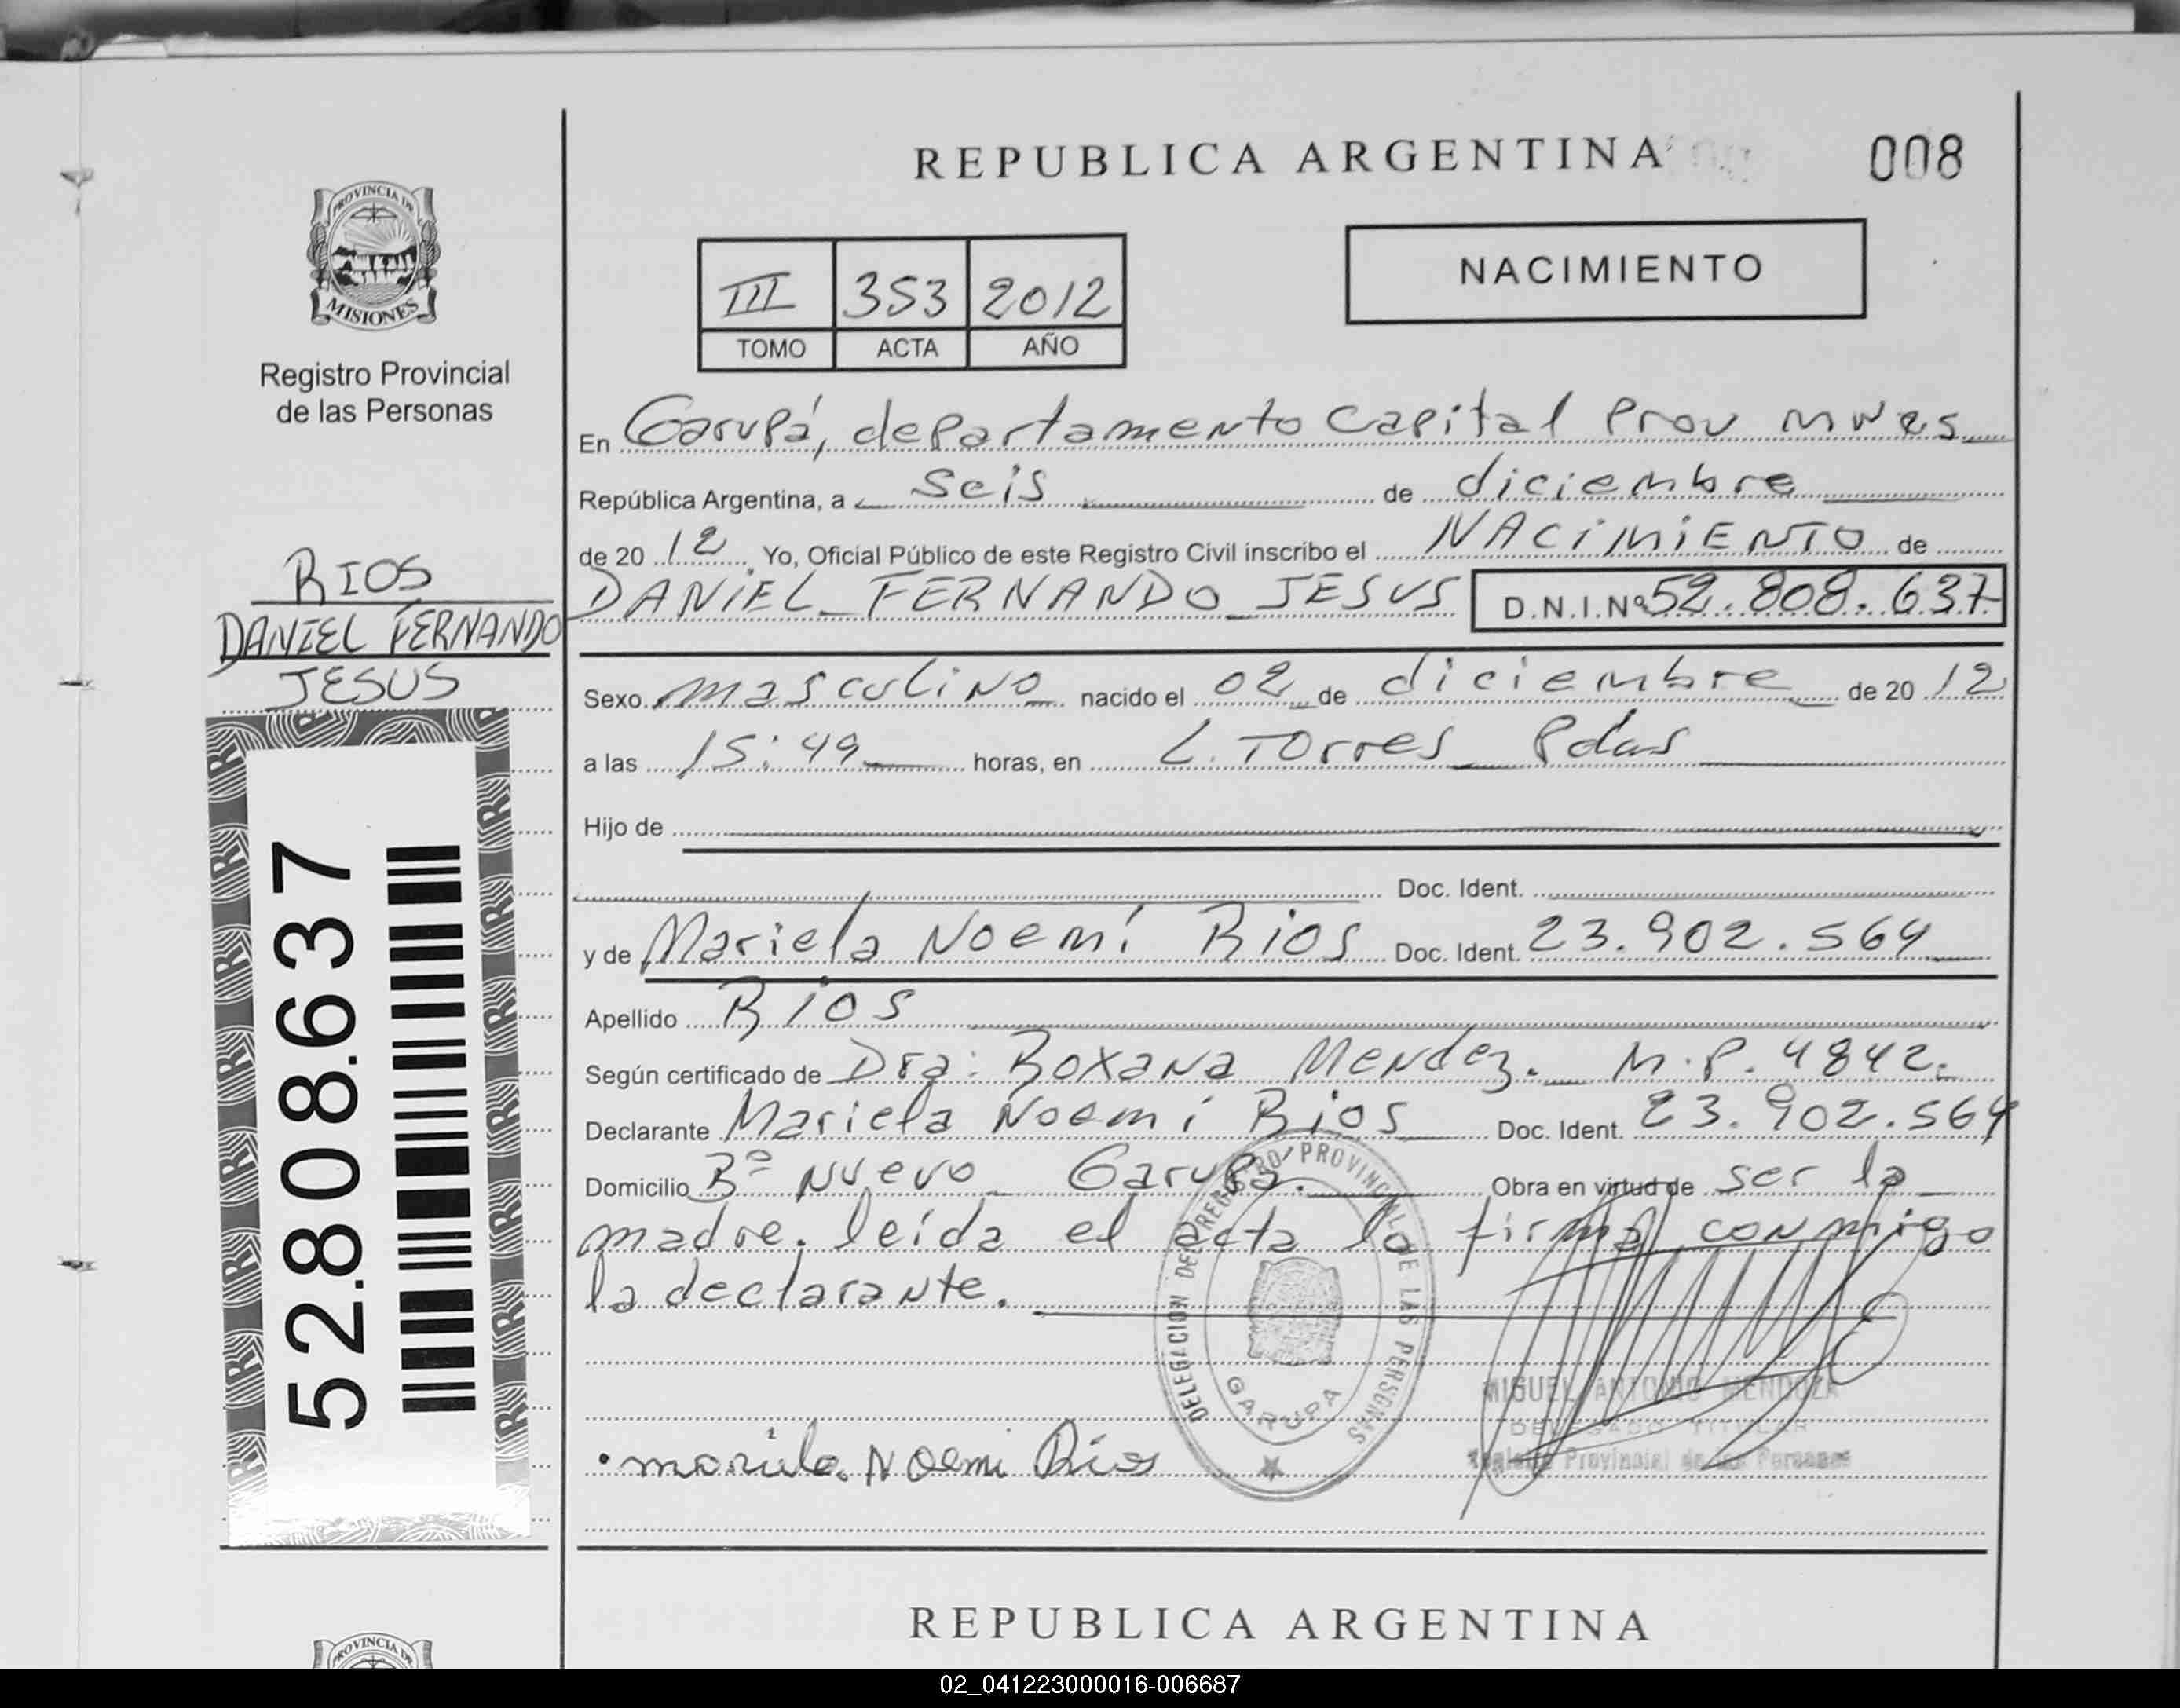 REPUBLICA ARGENTINA
008
PROVINCIA DE
MISIONES
Registro Provincial
de las Personas
NACIMIENTO
III 353 2012
TOMO ACTA AÑO
En Garupá, departamento Capital Prov mnes
República Argentina, a seis de diciembre
de 20 12. Yo, Oficial Público de este Registro Civil inscribo el NACIMIENTO de
DANIEL FERNANDO JESUS D.N.I.Nº 52.808.637
RIOS
DANIEL FERNANDO
JESUS
52.808.637
Sexo masculino nacido el 02 de diciembre de 20 12
a las 15:49 horas, en L. Torres Pdas
Hijo de
Doc. Ident.
y de Mariela Noemí Rios Doc. Ident. 23.902.564
Apellido Rios
Según certificado de Dra: Roxana Mendez. M.P. 4842.
Declarante Mariela Noemi Rios Doc. Ident. 23.902.564
Domicilio Bº Nuevo Garupa. Obra en virtud de ser la
madre. leída el acta la firma conmigo
la declarante.
DELEGACION DEL REGISTRO PROVINCIAL DE LAS PERSONAS
GARUPA
MIGUEL ANTONIO MENDOZA
DELEGADO TITULAR
Registro Provincial de las Personas
mariela Noemi Rios
REPUBLICA ARGENTINA
PROVINCIA DE
02_041223000016-006687